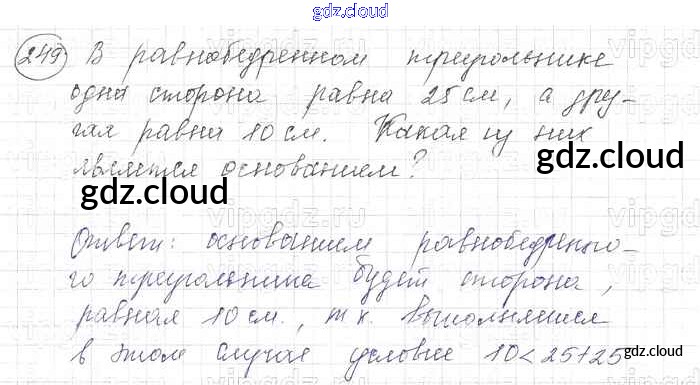 gdz.cloud
249 В равнобедренном треугольнике
одна сторона равна 25 см, а дру-
гая равна 10 см. Какая из них
является основанием?
gdz.cloud
gdz.cloud
Ответ: основанием равнобедренно-
го треугольника будет сторона,
равная 10 см., т.к. выполняется
в этом случае условие 10 < 25 + 25
gdz.cloud